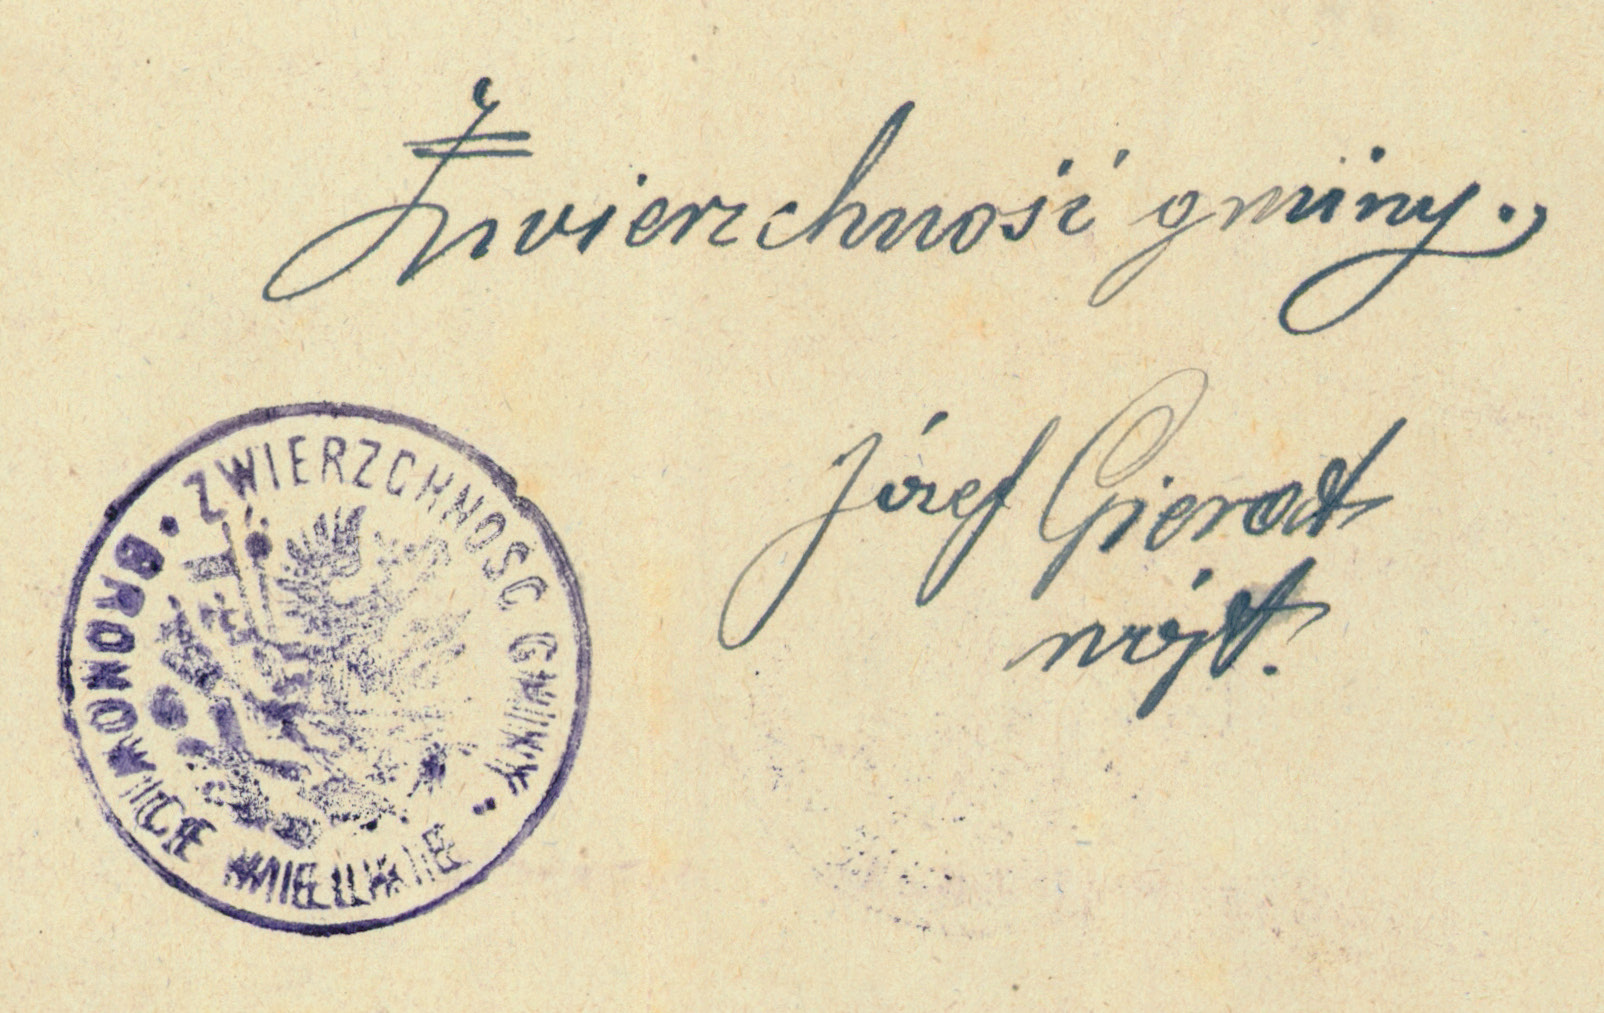 Zwierzchność gminy.
Józef Gierat
wójt.
ZWIERZCHNOŚĆ GMINY.
BRONOWICE WIELKIE